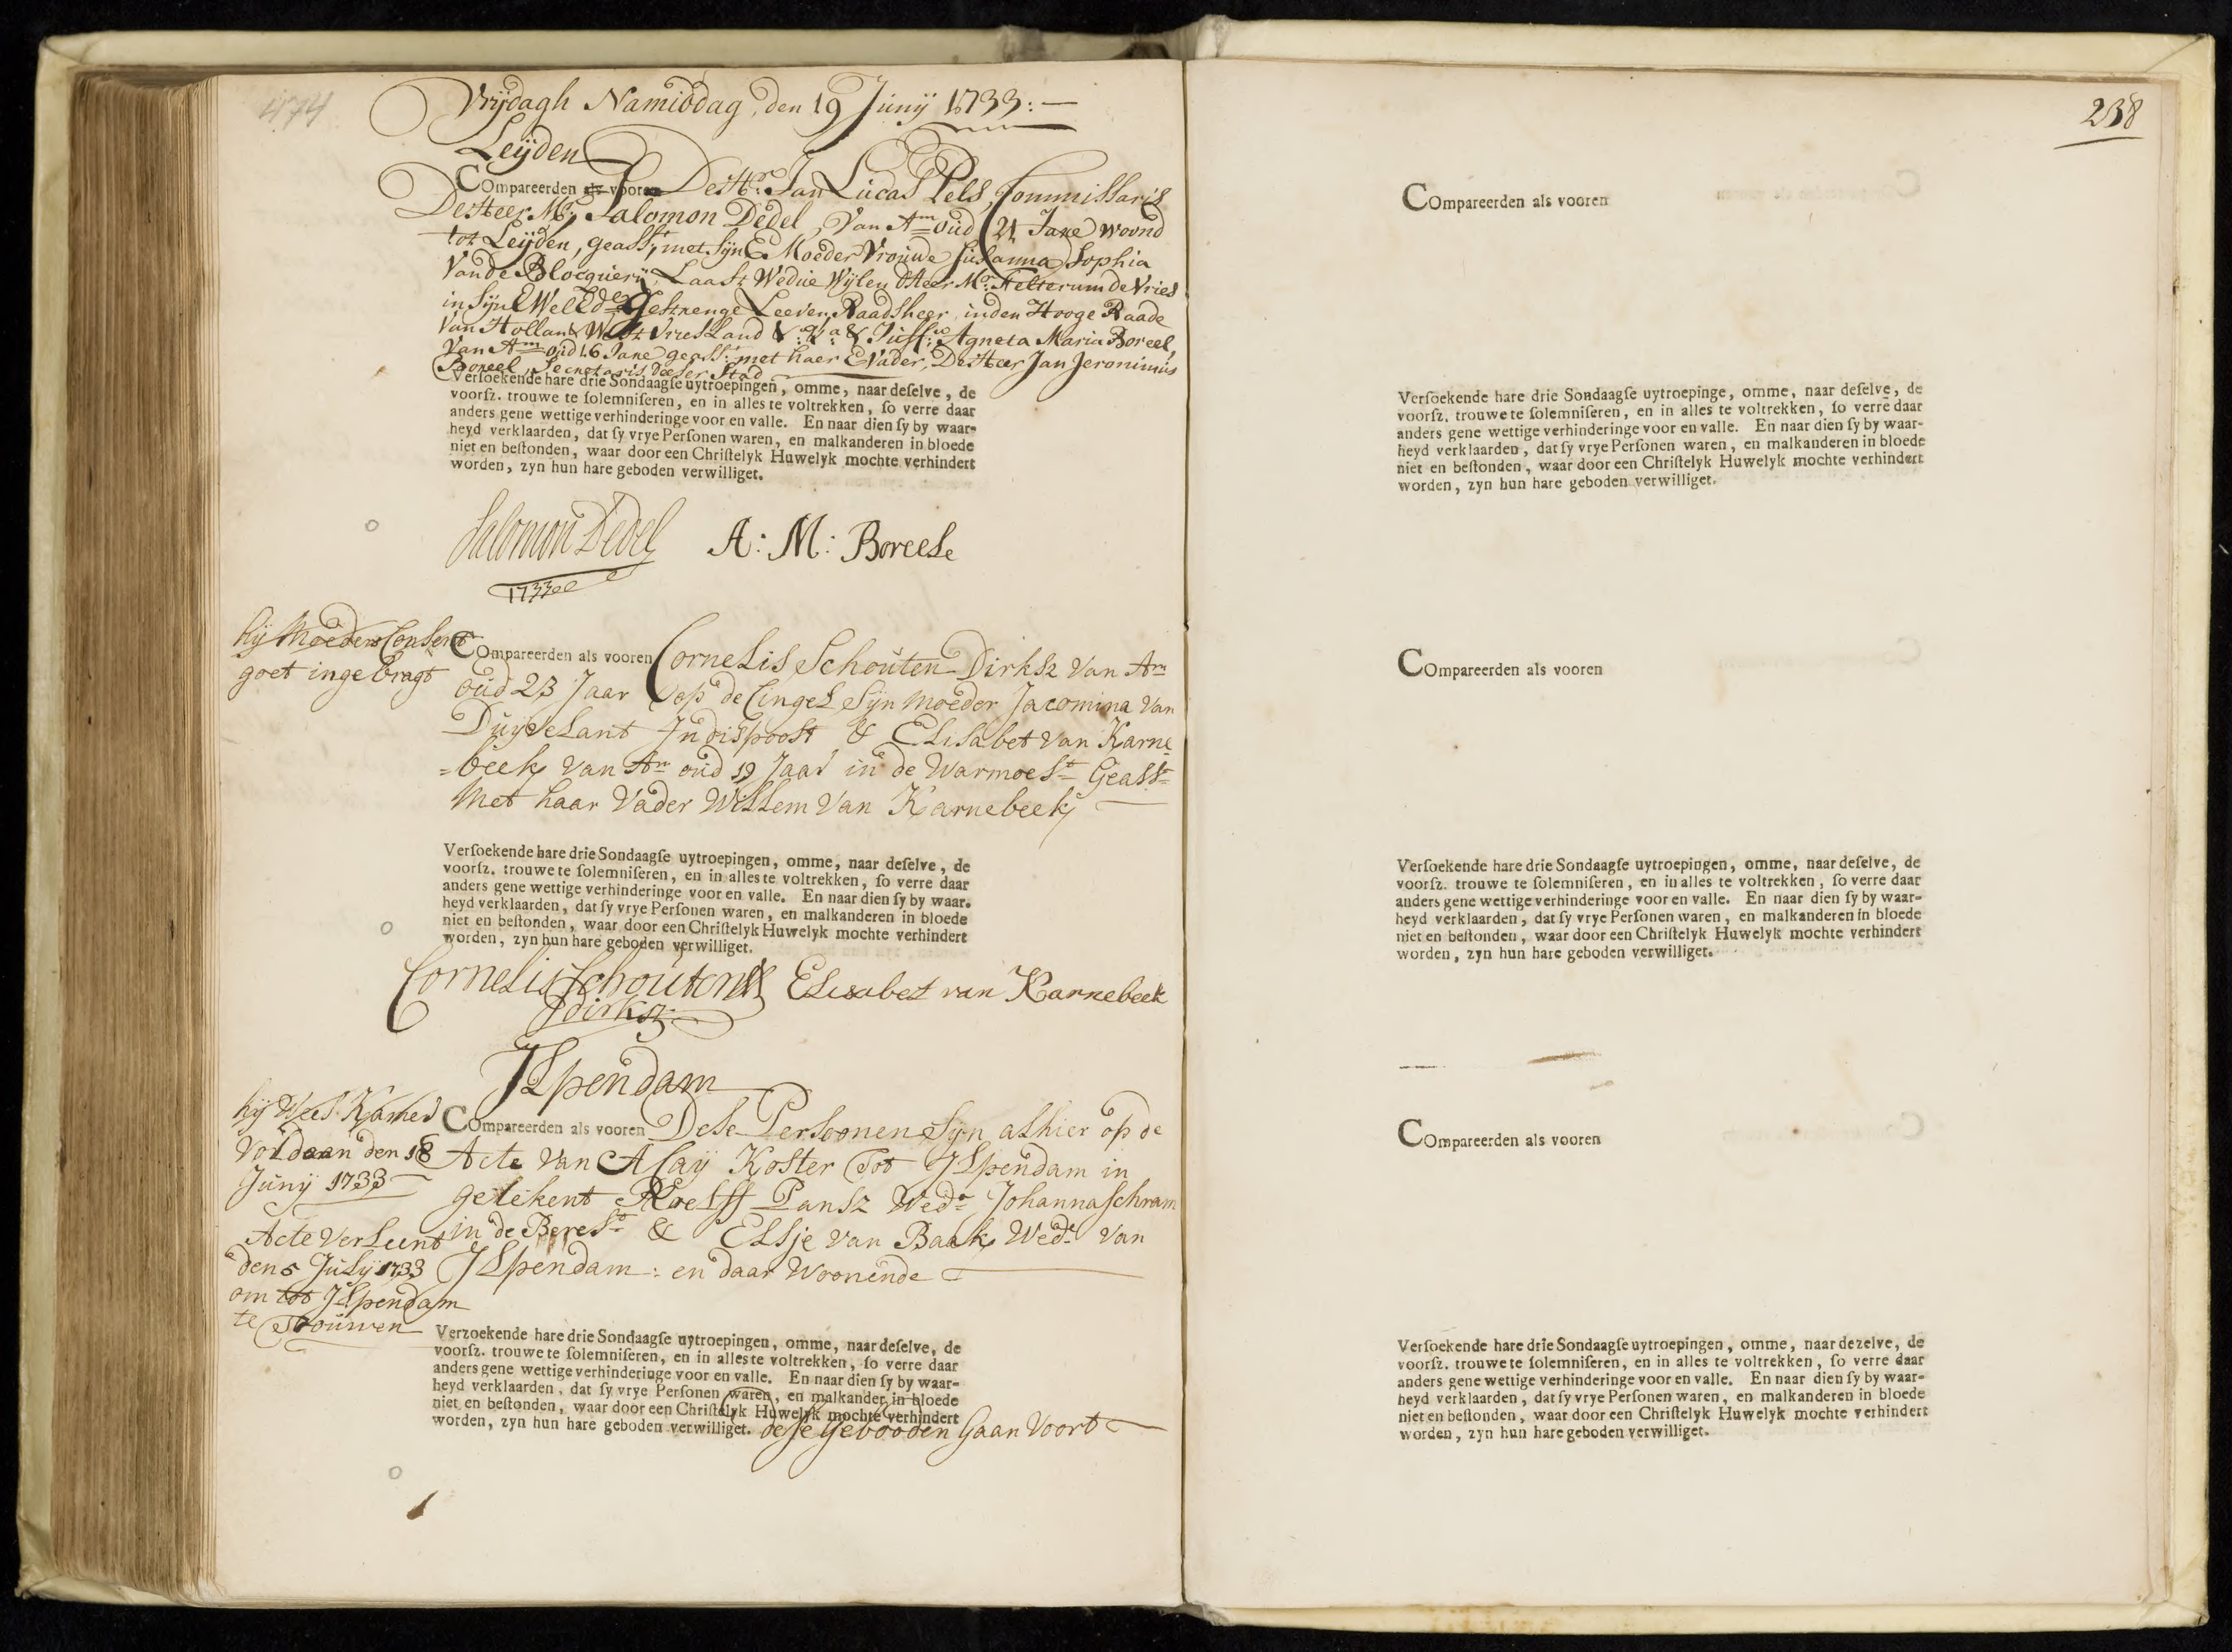 474
Vrijdagh Namiddag, den 19 Junij 1733: —
Leijden
Compareerden als vooren Des Hr: Jan Lucas Pels, Commissaris
De Heer Mr: Salomon Dedel, van Am oud 21 Jare woond
tot Leijden, geasst, met sijn E Moeder Vrouwe Susanna Sophia
Van de Blocquerij, Laast Wedue Wijlen d Heer Mr: de Vries
in sijn E Well Ed Gestrenge Leeven, Raadsheer in den Hooge Raade
Van Holland West Vriesland & Juff: Agneta Maria Boreel,
Van Am oud 16 Jare geasst: met haer E Vader, De Heer Jan Jeronimus
Boreel, Secretaris deeser Stad
Versoekende hare drie Sondaagse uytroepingen, omme, naar deselve, de
voorsz. trouwe te solemniseren, en in alles te voltrekken, so verre daar
anders gene wettige verhinderinge voor en valle. En naar dien sy by waar-
heyd verklaarden, dat sy vrye Personen waren, en malkanderen in bloede
niet en bestonden, waar door een Christelyk Huwelyk mochte verhindert
worden, zyn hun hare geboden verwilliget.
Salomon Dedel A: M: Boreele
1733
hij Moeders Consent
goet ingebragt
Compareerden als vooren Cornelis Schouten Dirksz van Am
oud 23 Jaar op de Cingel sijn Moeder Jacomina van
Duijvelant Indispoost & Elisabet van Karne
=beek van Am oud 19 Jaar in de Warmoest Geasst
Met haar Vader Willem van Karnebeek
Versoekende hare drie Sondaagse uytroepingen, omme, naar deselve, de
voorsz. trouwe te solemniseren, en in alles te voltrekken, so verre daar
anders gene wettige verhinderinge voor en valle. En naar dien sy by waar-
heyd verklaarden, dat sy vrye Personen waren, en malkanderen in bloede
niet en bestonden, waar door een Christelyk Huwelyk mochte verhindert
worden, zyn hun hare geboden verwilliget.
Cornelis Schouten Elisabet van Karnebeek
dirksz
Ilpendam
hij Wees Kamer
Voldaan den 18
Junij 1733
Acte verleent
den 5 Julij 1733
om tot Ilpendam
te Trouwen
Compareerden als vooren Dese Persoonen sijn alhier op de
Acte van A Caij Koster Tot Ilpendam in
getekent Roelff Pansz Wedr Johanna Schram
in de Berest & Elsje van Baak Wede van
Ilpendam: en daar Woonende
Verzoekende hare drie Sondaagse uytroepingen, omme, naar deselve, de
voorsz. trouwe te solemniseren, en in alles te voltrekken, so verre daar
anders gene wettige verhinderinge voor en valle. En naar dien sy by waar-
heyd verklaarden, dat sy vrye Personen waren, en malkander in bloede
niet en bestonden, waar door een Christelyk Huwelyk mochte verhindert
worden, zyn hun hare geboden verwilliget. desse Gebooden Gaan Voort
238
Compareerden als vooren
Versoekende hare drie Sondaagse uytroepinge, omme, naar deselve, de
voorsz. trouwe te solemniseren, en in alles te voltrekken, so verre daar
anders gene wettige verhinderinge voor en valle. En naar dien sy by waar-
heyd verklaarden, dat sy vrye Personen waren, en malkanderen in bloede
niet en bestonden, waar door een Christelyk Huwelyk mochte verhindert
worden, zyn hun hare geboden verwilliget.
Compareerden als vooren
Versoekende hare drie Sondaagse uytroepingen, omme, naar deselve, de
voorsz. trouwe te solemniseren, en in alles te voltrekken, so verre daar
anders gene wettige verhinderinge voor en valle. En naar dien sy by waar-
heyd verklaarden, dat sy vrye Personen waren, en malkanderen in bloede
niet en bestonden, waar door een Christelyk Huwelyk mochte verhindert
worden, zyn hun hare geboden verwilliget.
Compareerden als vooren
Versoekende hare drie Sondaagse uytroepingen, omme, naar dezelve, de
voorsz. trouwe te solemniseren, en in alles te voltrekken, so verre daar
anders gene wettige verhinderinge voor en valle. En naar dien sy by waar-
heyd verklaarden, dat sy vrye Personen waren, en malkanderen in bloede
niet en bestonden, waar door een Christelyk Huwelyk mochte verhindert
worden, zyn hun hare geboden verwilliget.